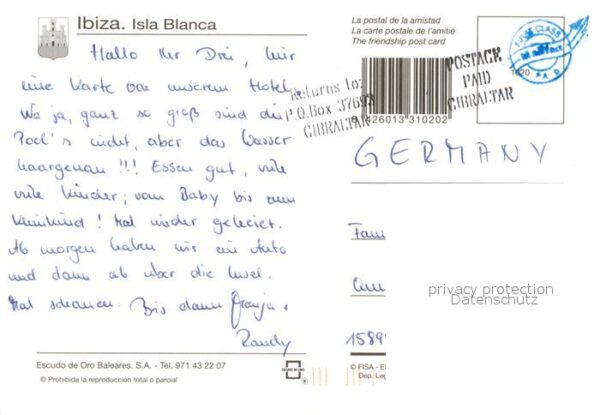 Ibiza. Isla Blanca
Hallo Ihr Drei, hier
eine Karte von unserem Hotel.
Na ja, ganz so groß sind die
Pool's nicht, aber das Wasser
haargenau !!! Essen gut, viele
viele Kinder; vom Baby bis zum
Kleinkind! Mal wieder geleiert.
Ab morgen haben wir ein Auto
und dann ab über die Insel.
Mal schauen. Bis dann
Randy
Escudo de Oro Baleares. S.A. - Tel. 971 43 22 07
© Prohibida la reproducción total o parcial
ESCUDO DE ORO
La postal de la amistad
La carte postale de l'amitié
The friendship post card
Returns to:
P.O.Box 37693
GIBRALTAR
POSTAGE
PAID
GIBRALTAR
FIRST CLASS
PAID
1620
9 426013 310202
GERMANY
Fam
privacy protection
Datenschutz
1589
© FISA - E
Dep. Leg